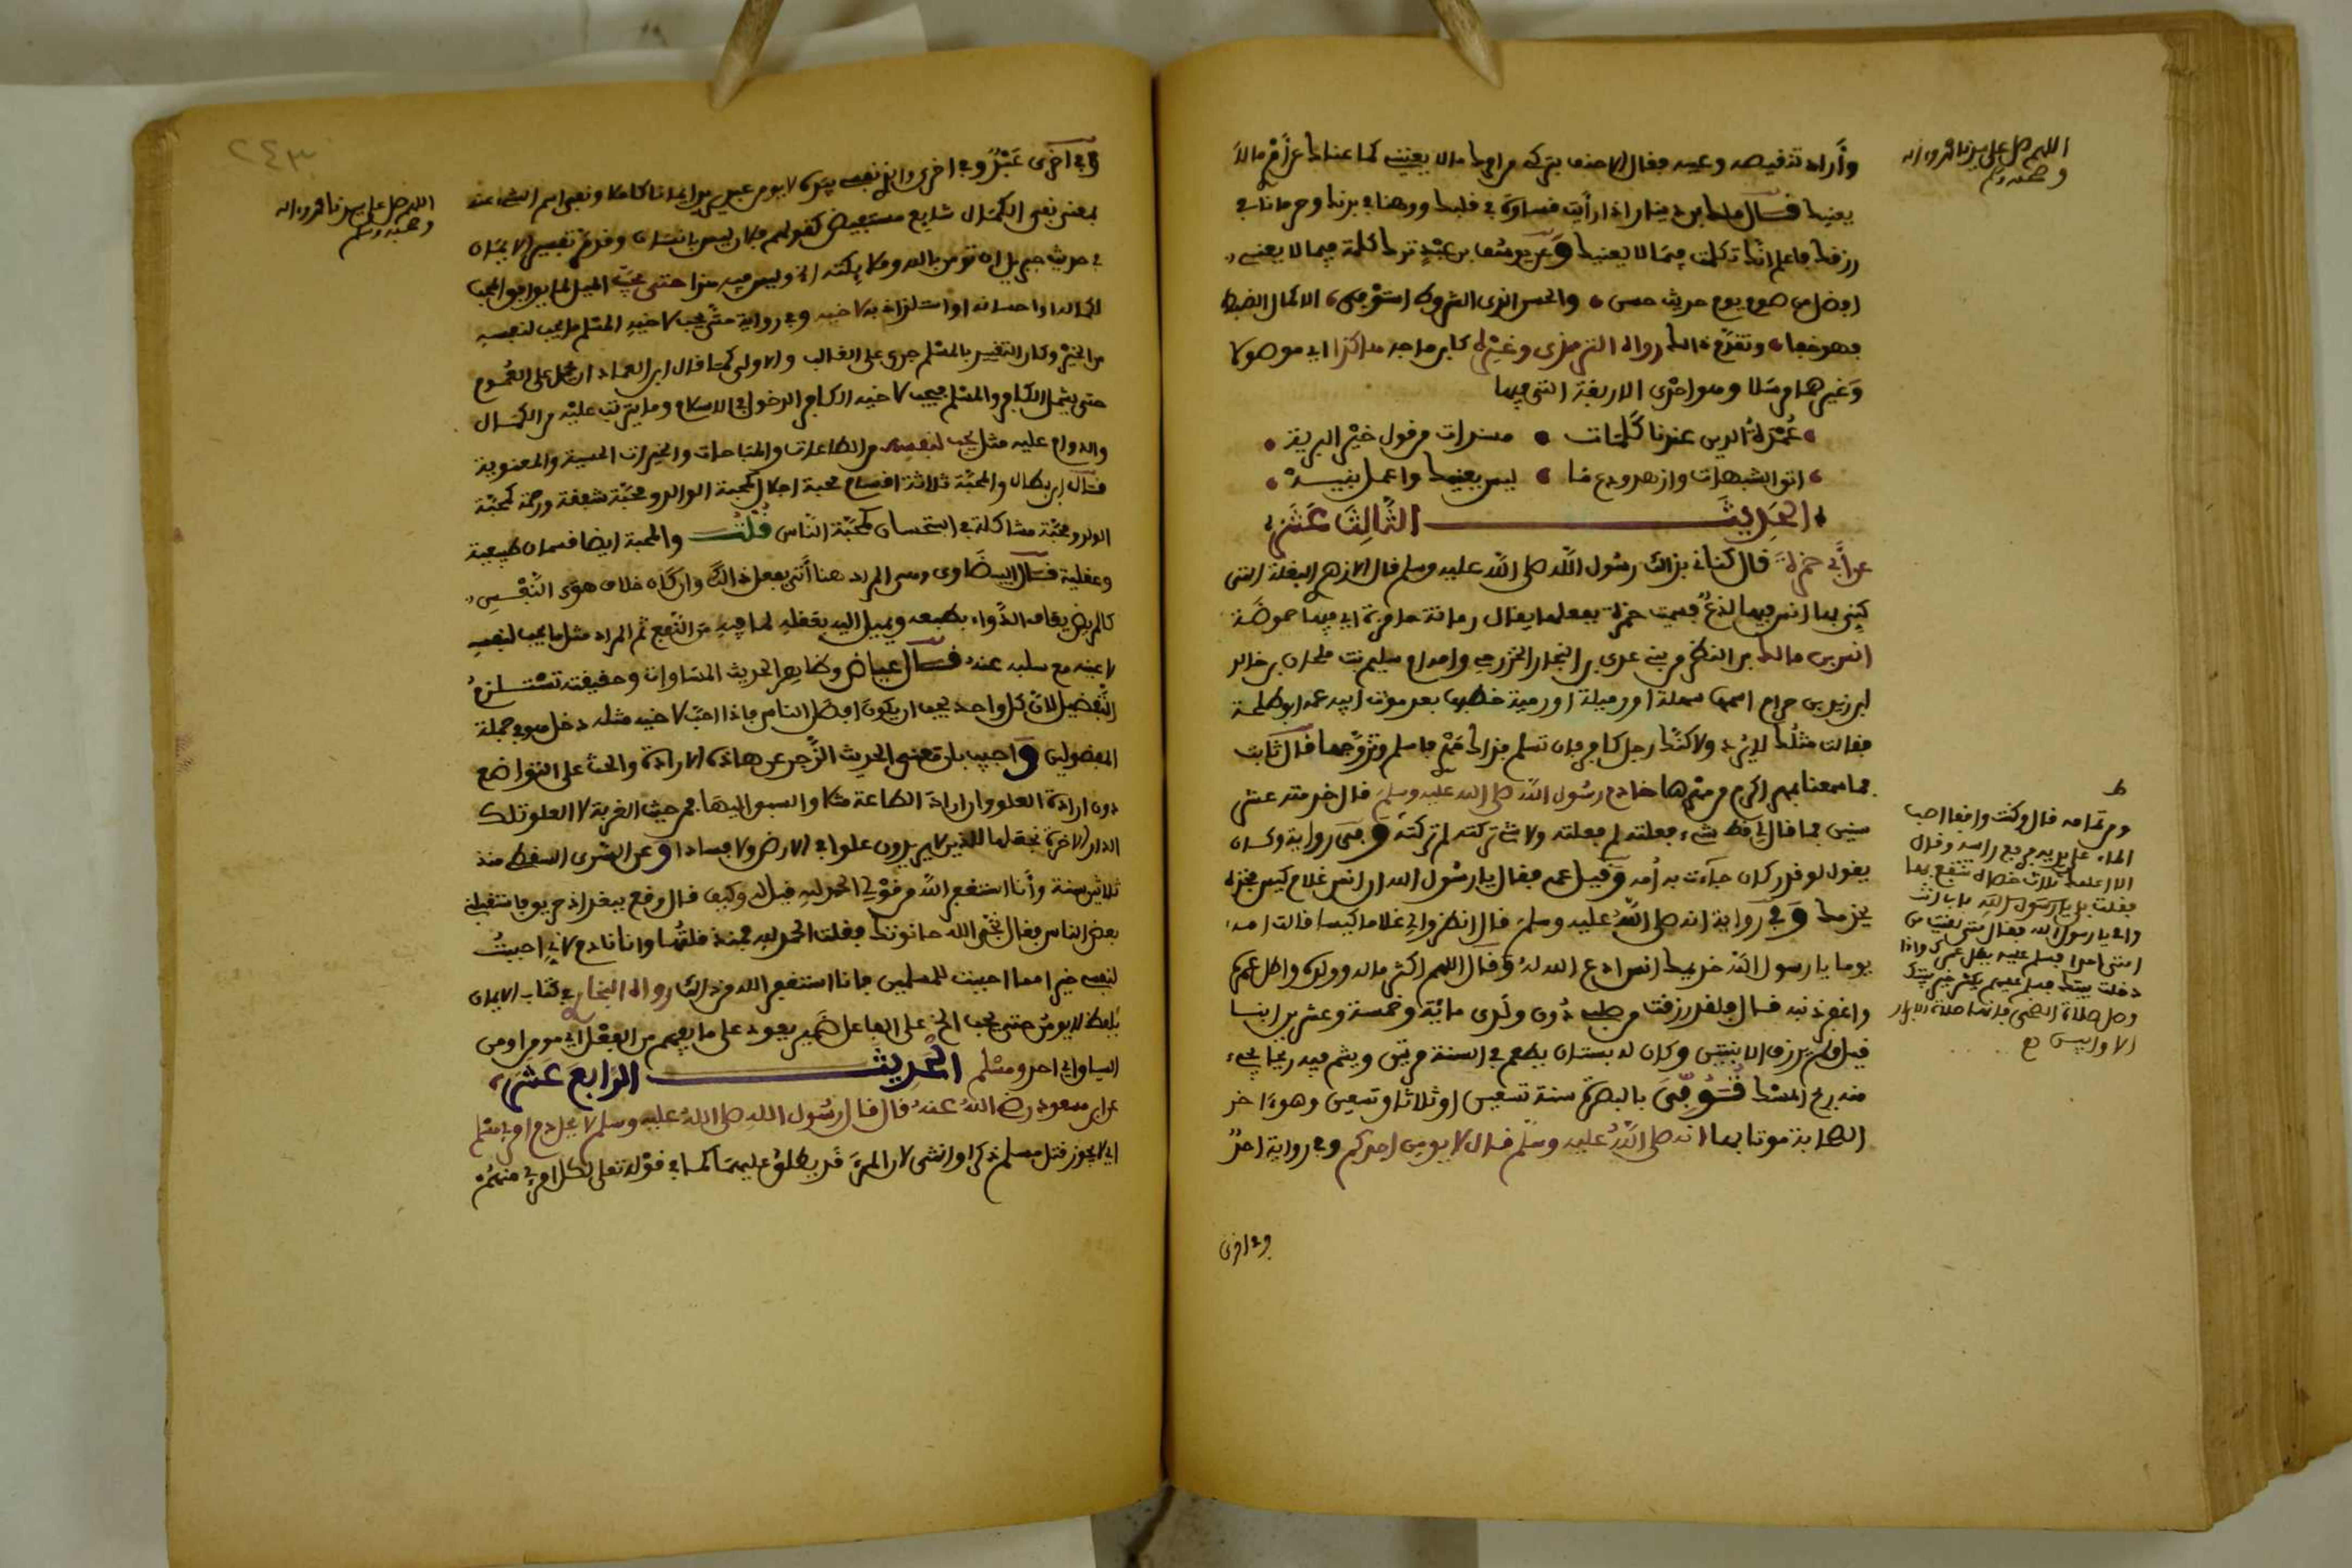 اللهم صل على سيدنا محمد وءاله
وصحبه وسلم
وأراد تنقيصه وعيبه فقال الاحنف بتركي من امرك ما لا يعنيني كما عناك من أمري ما لا
يعنيك قال مالك بن دينار اذا رأيت قساوة في قلبك ووهنا في بدنك وحرمانا في
رزقك فاعلم انك تكلمت فيما لا يعنيك وعن يونس بن عبيد ترك كلمة فيما لا يعني
افضل من صوم يوم حديث حسن والحسن الذي الشروط استوفى الا كمال الضبط
فهو خفا وتقدم ذلك رواه الترمذي وغيره كابن ماجه هكذا اي موصولا
وغيرهما مرسلا وهو احدى الاربعة التي فيها
عمدة الدين عندنا كلمات مسندات من قول خير البرية
اتق الشبهات وازهد ودع ما ليس يعنيك واعمل بنية
الحديث الثالث عشر
عن أبي حمزة قال كناني بذلك رسول الله صلى الله عليه وسلم قال الازهري البقلة التي
كني بها انس فيها لذع فسميت حمزة بفعلها يقال رمانة حامزة اي فيها حموضة
انس بن مالك بن النضر من بني عدي بن النجار الخزرجي وامه ام سليم بنت ملحان بن خالد
ابن زيد بن حرام اسمها سهلة او رميلة او رمية خطبها بعد موت ابيه عمه ابو طلحة
فقالت مثلك لا يرد ولاكنك رجل كافر فان تسلم فذاك مهري فاسلم وتزوجها قال ثابت
فما سمعنا بمهر اكرم من مهرها خادم رسول الله صلى الله عليه وسلم قال خدمته عشر
سنين فما قال لي قط لشيء فعلته لم فعلته ولا شيء تركته لم تركته وفي رواية وكان
يقول لو قدر كان جاءت به أمه وقيل عمه فقال يا رسول الله ان انس غلام كيس فخذه
يخدمك وفي رواية انه صلى الله عليه وسلم قال انظروا لي غلاما كيسا قالت امه
يوما يا رسول الله خويدمك انس ادع الله له وقال اللهم اكثر ماله وولده واطل عمره
واغفر ذنبه قال فلقد رزقت من صلبي دون ولدي مائة وخمسة وعشرين ابنا
قيل ولم يرزق الا بنتين وكان له بستان يطعم في السنة مرتين ويشم فيه ريحا يجيء
منه ريح المسك توفي بالبصرة سنة تسعين او ثلاثا وتسعين وهو ءاخر
الصحابة موتا بها انه صلى الله عليه وسلم قال لا يومن احدكم وفي رواية احد
وفي اخرى
ط
ومن تمامه قال وكنت واقفا اصب
الماء على يديه فرفع راسه وقال
الا اعلمك ثلاث خصال تنتفع بها
فقلت بلى يا رسول الله بابي انت
وامي يا رسول الله فقال متى لقيت من
امتي احدا فسلم عليه يطل عمرك واذا
دخلت بيتك فسلم عليهم يكثر خير بيتك
وصل صلاة الضحى فانها صلاة الابرار
الاوابين
٢٤٣
اللهم صل على سيدنا محمد وءاله
وصحبه وسلم
وفي اخرى عبد وفي اخرى والذي نفسي بيده لا يومن عبد اي ايمانا كاملا ونفي اسم الشيء عنه
بمعنى نفي الكمال شايع مستفيض كقولهم فلان ليس بانسان وقد مر تفسير الايمان
في حديث جبريل ان تومن بالله وملايكته الخ وليس فيه هذا حتى يحب الميل لما يوافق المحب
لكماله او احسانه او استلزاذ به لاخيه وفي رواية حتى يحب لاخيه المسلم ما يحب لنفسه
من الخير وكان التفسير بالمسلم جرى على الغالب والاولى كما قال ابن العماد ان يحمل على العموم
حتى يشمل الكافر والمسلم فيحب لاخيه الكافر الدخول في الاسلام وما يترتب عليه من الكمال
والدوام عليه مثل ما يحب لنفسه من الطاعات والمباحات والخيرات الحسية والمعنوية
قال ابن بطال والمحبة ثلاثة اقسام محبة اجلال كمحبة الوالد ومحبة شفقة ورحمة كمحبة
الولد ومحبة مشاكلة في استحسان كمحبة الناس قلت والمحبة ايضا قسمان طبيعية
وعقلية قال البيضاوي وهي المراد هنا أي يفعل ذلك وان كان خلاف هوى النفس
كالمريض يعاف الدواء بطبعه ويميل اليه بعقله لما فيه من النفع ثم المراد مثل ما يحب لنفسه
لا عينه مع سلبه عنه قال عياض وظاهر الحديث المساواة وحقيقته تستلزم
التفضيل لان كل واحد يحب ان يكون افضل الناس فاذا احب لاخيه مثله دخل هو في جملة
المفضولين واجيب بان معنى الحديث الزجر عن هاذه الارادة والحث على التواضع
دون ارادة العلو واراد الطاعة مثلا والسبق اليها من حيث القربة لا العلو تلك
الدار الاخرة نجعلها للذين لا يريدون علوا في الارض ولا فسادا وعن السري السقطي منذ
ثلاثين سنة وأنا استغفر الله من قولي الحمد لله قيل له وكيف قال وقع ببغداد حريق فاستقبلني
بعض الناس فقال نجى الله حانوتك فقلت الحمد لله فمنذ قلتها وانا نادم لاني احببت
لنفسي خيرا مما احببت للمسلمين فانا استغفر الله من ذلك رواه البخاري في كتاب الايمان
بلفظ لا يومن حتى يحب الخ على الفاعل ضمير يعود على ما يفهم من الفعل اي مومن او من
السياق اي احد ومسلم الحديث الرابع عشر
عن ابن مسعود رضي الله عنه قال قال رسول الله صلى الله عليه وسلم لا يحل دم امرئ مسلم
اي لا يجوز قتل مسلم ذكرا او انثى لان المرء قد يطلق عليهما كما في قوله تعالى لكل امرئ منهم